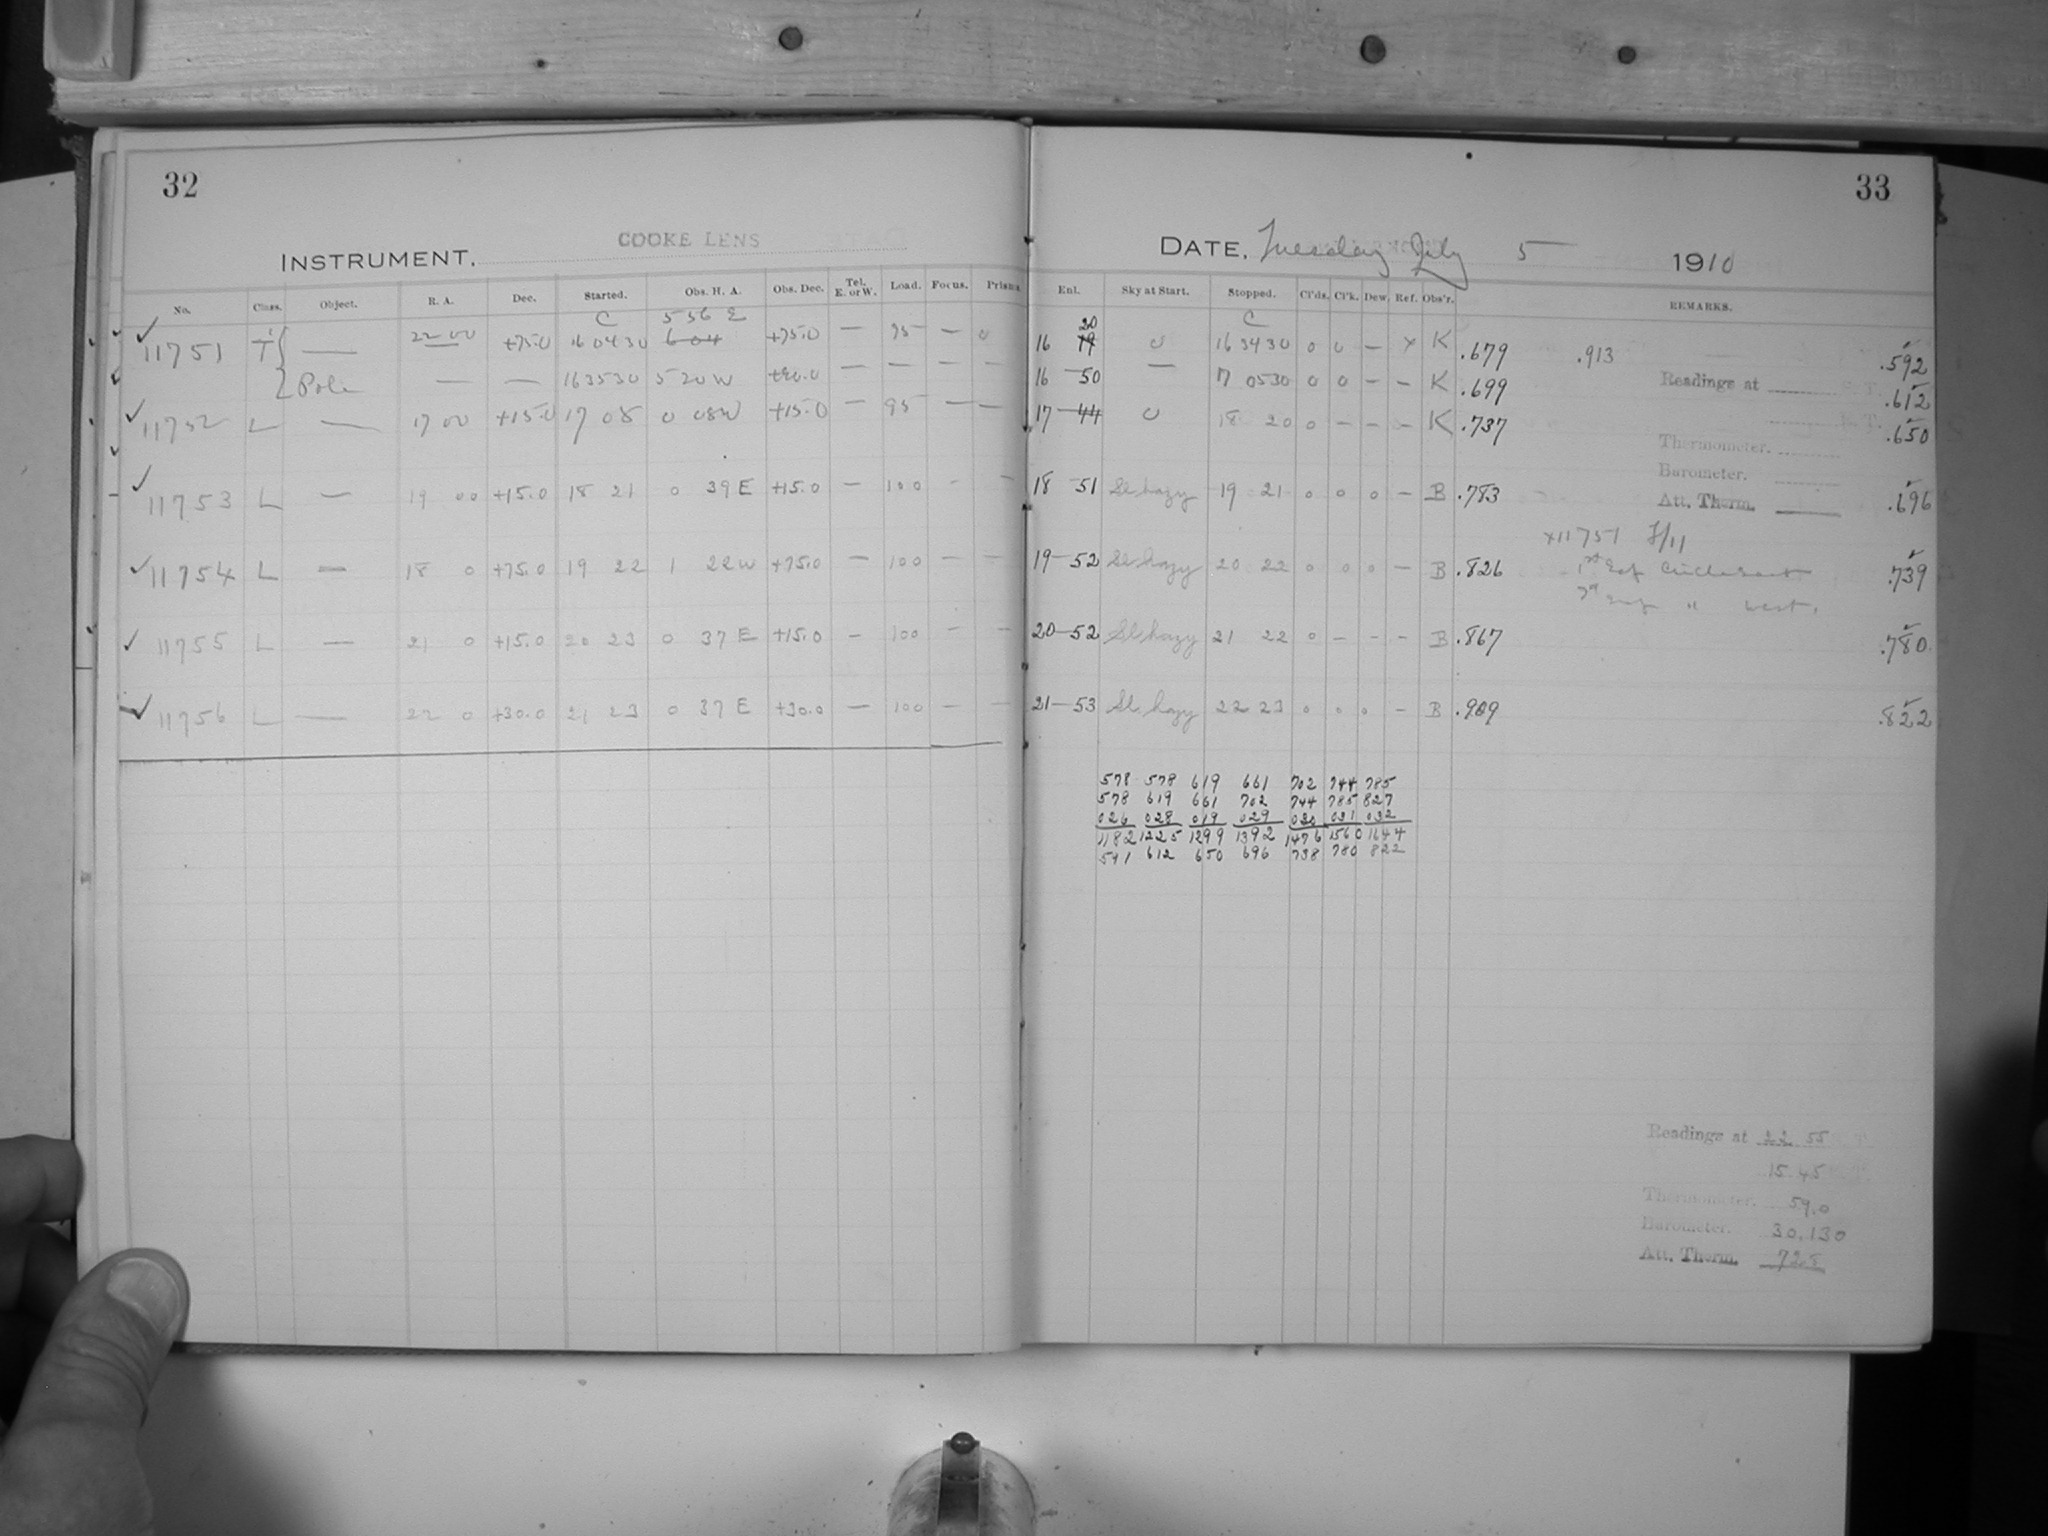 32
33
INSTRUMENT. COOKE LENS
DATE. Tuesday July 5 1910
No. Class. Object. R. A. Dec. Started. Obs. H. A. Obs. Dec. Tel. E. or W. Load. Focus. Prisms Enl. Sky at Start. Stopped. Cl'ds. Cl'k. Dew. Ref. Obs'r. REMARKS.
C 5 56 E 20 C
✓ 11751 T { — 22 00 +75.0 16 04 30 6 04 +75.0 — 95 — 0 16 19 0 16 34 30 0 0 — x K .679 .913 .592
{ Pole — — 16 35 30 5 20 W +90.0 — — — — 16 50 — 17 05 30 0 0 – – K .699 Readings at .612
✓ 11752 L — 17 00 +15.0 17 08 0 08 W +15.0 — 95 — — 17 44 0 18 20 0 – – – K .737 .650
Thermometer.
Barometer.
✓ 11753 L — 19 00 +15.0 18 21 0 39 E +15.0 — 100 - – 18 51 Sl hazy 19 21 0 0 0 – B .783 Att. Therm. .696
x11751 F/11
✓ 11754 L — 18 0 +75.0 19 22 1 22 W +75.0 — 100 — — 19—52 Sl hazy 20 22 0 0 0 – B .826 1st Exp Circle East .739
" West.
✓ 11755 L — 21 0 +15.0 20 23 0 37 E +15.0 – 100 – — 20—52 Sl hazy 21 22 0 – – – B .867 .780
✓ 11756 L — 22 0 +30.0 21 23 0 37 E +30.0 — 100 — — 21—53 Sl hazy 22 23 0 0 0 – B .909 .822
578 578 619 661 702 744 785
578 619 661 702 744 785 827
026 028 019 029 030 031 032
1182 1225 1299 1392 1476 1560 1644
591 612 650 696 738 780 822
Readings at 22 55
15 45
Thermometer. 59.0
Barometer. 30.130
Att. Therm. 72.5